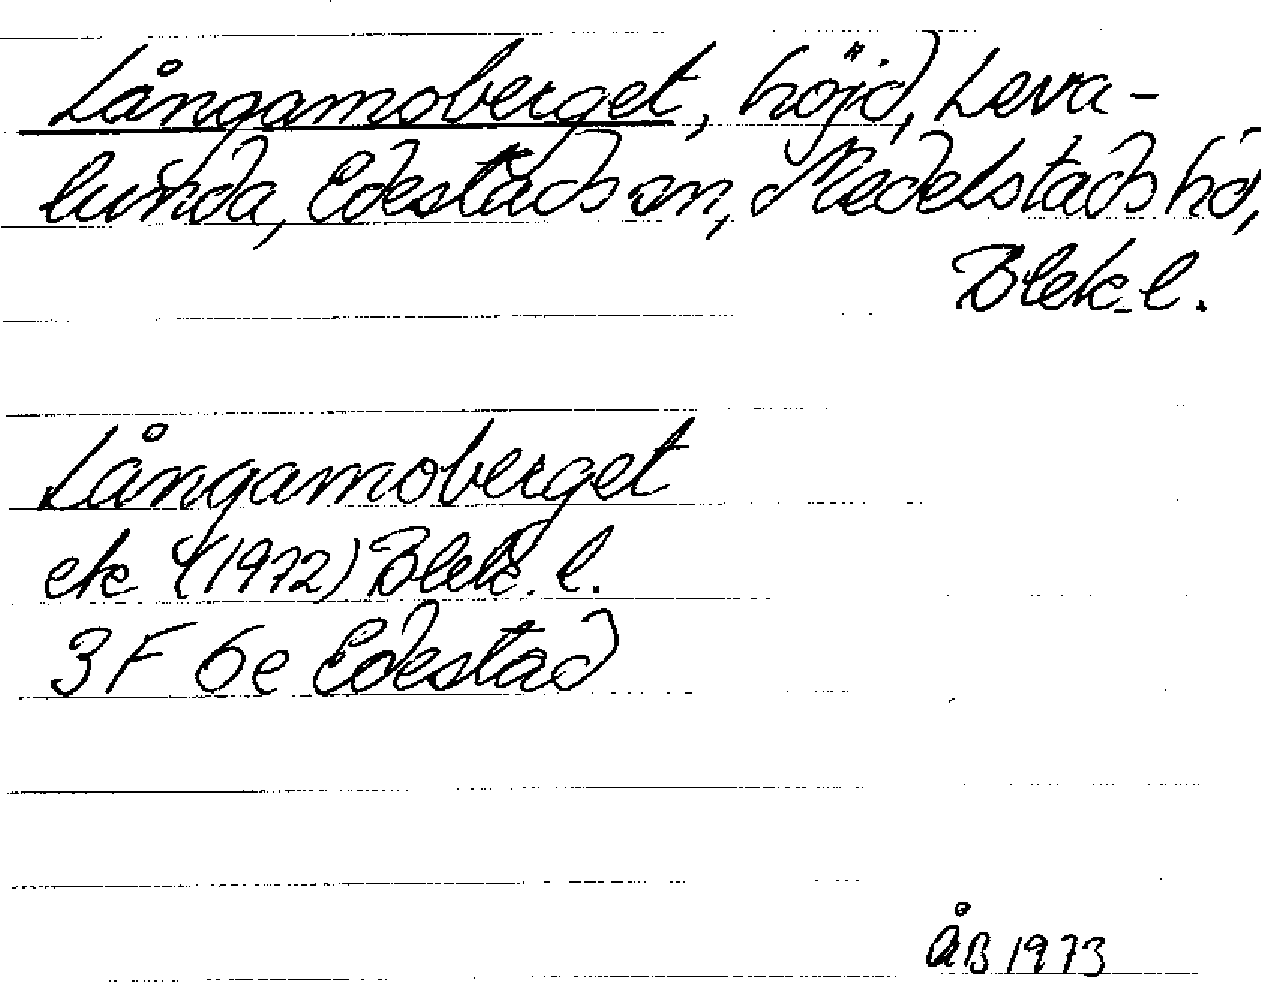 Långamoberget, höjd, Leva-
lunda, Edestads sn, Medelstads hd,
Blek. l.
Långamoberget
ek (1972) Blek. l.
3F 6e Edestad
ÅB 1973